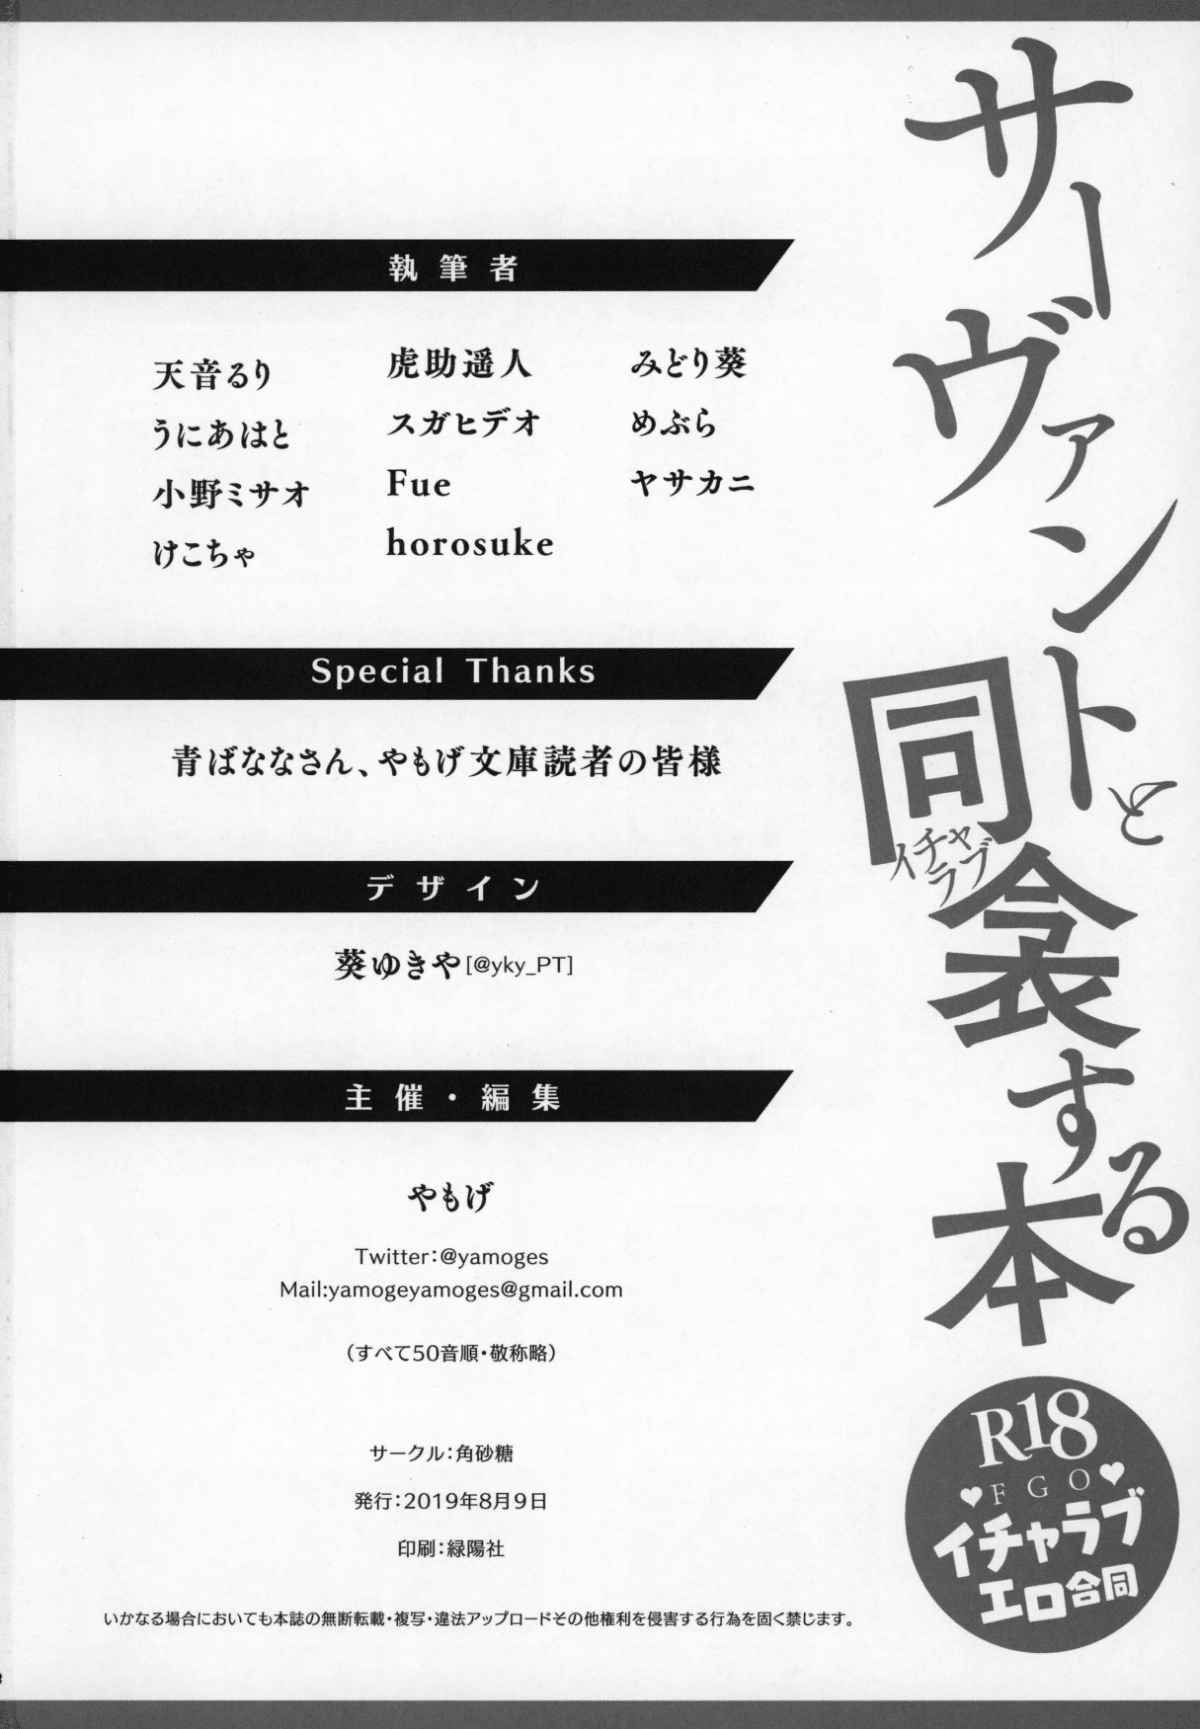 サーヴァントと
同衾する本
イチャ
ラブ
R18
FGO
イチャラブ
エロ合同
執筆者
天音るり
うにあはと
小野ミサオ
けこちゃ
虎助遥人
スガヒデオ
Fue
horosuke
みどり葵
めぶら
ヤサカニ
Special Thanks
青ばななさん、やもげ文庫読者の皆様
デザイン
葵ゆきや[@yky_PT]
主催・編集
やもげ
Twitter:@yamoges
Mail:yamogeyamoges@gmail.com
(すべて50音順・敬称略)
サークル:角砂糖
発行:2019年8月9日
印刷:緑陽社
いかなる場合においても本誌の無断転載・複写・違法アップロードその他権利を侵害する行為を固く禁じます。